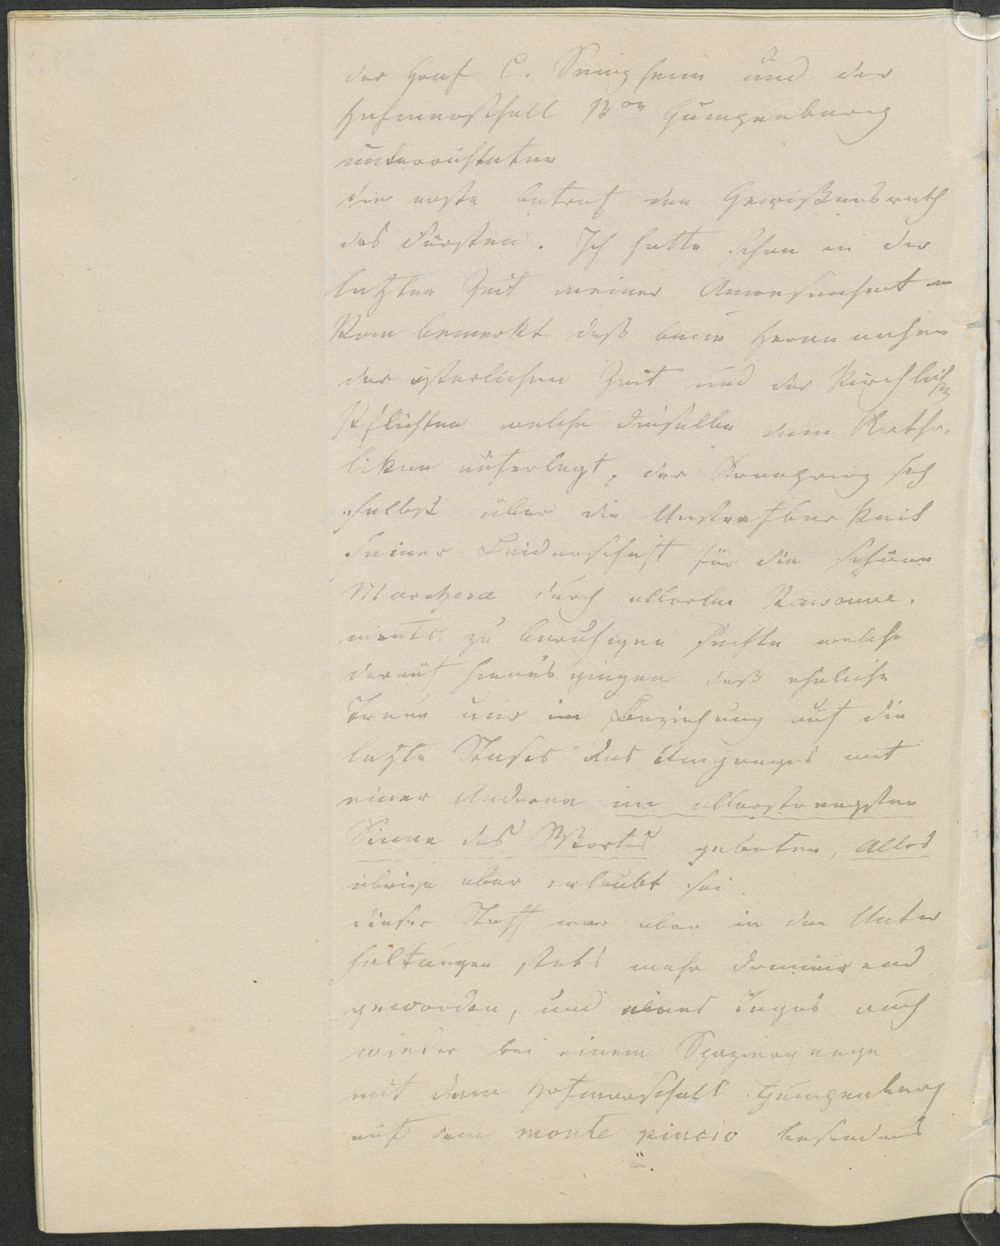 der Graf C. Seinsheim und der
Hofmarschall Bon Gumpenberg
unterrichteten
die erste betraf den Gewißensrath
des Fürsten. Ich hatte schon in der
letzten Zeit meiner Anwesenheit in
Rom bemerkt daß beim Herannahen
der österlichen Zeit und der kirchlich
Pflichten welche dieselbe dem Katho-
liken auferlegt, der Kronprinz sich
selbst über die Unstrafbarkeit
seiner Leidenschaft für die schöne
Marchesa durch allerlei Raisonne-
ments zu beruhigen suchte welche
darauf hinaus gingen daß eheliche
Treue nur in Beziehung auf die
letzte Stufe des Umganges mit
einer Anderen im allerstrengsten
Sinne des Wortes geboten, Alles
übrige aber erlaubt sei.
dieser Stoff war aber in den Unter
haltungen stets mehr dominirend
geworden, und eines Tages auch
wieder bei einem Spaziergange
mit dem Hofmarschall Gumpenberg
auf dem monte pincio besonders